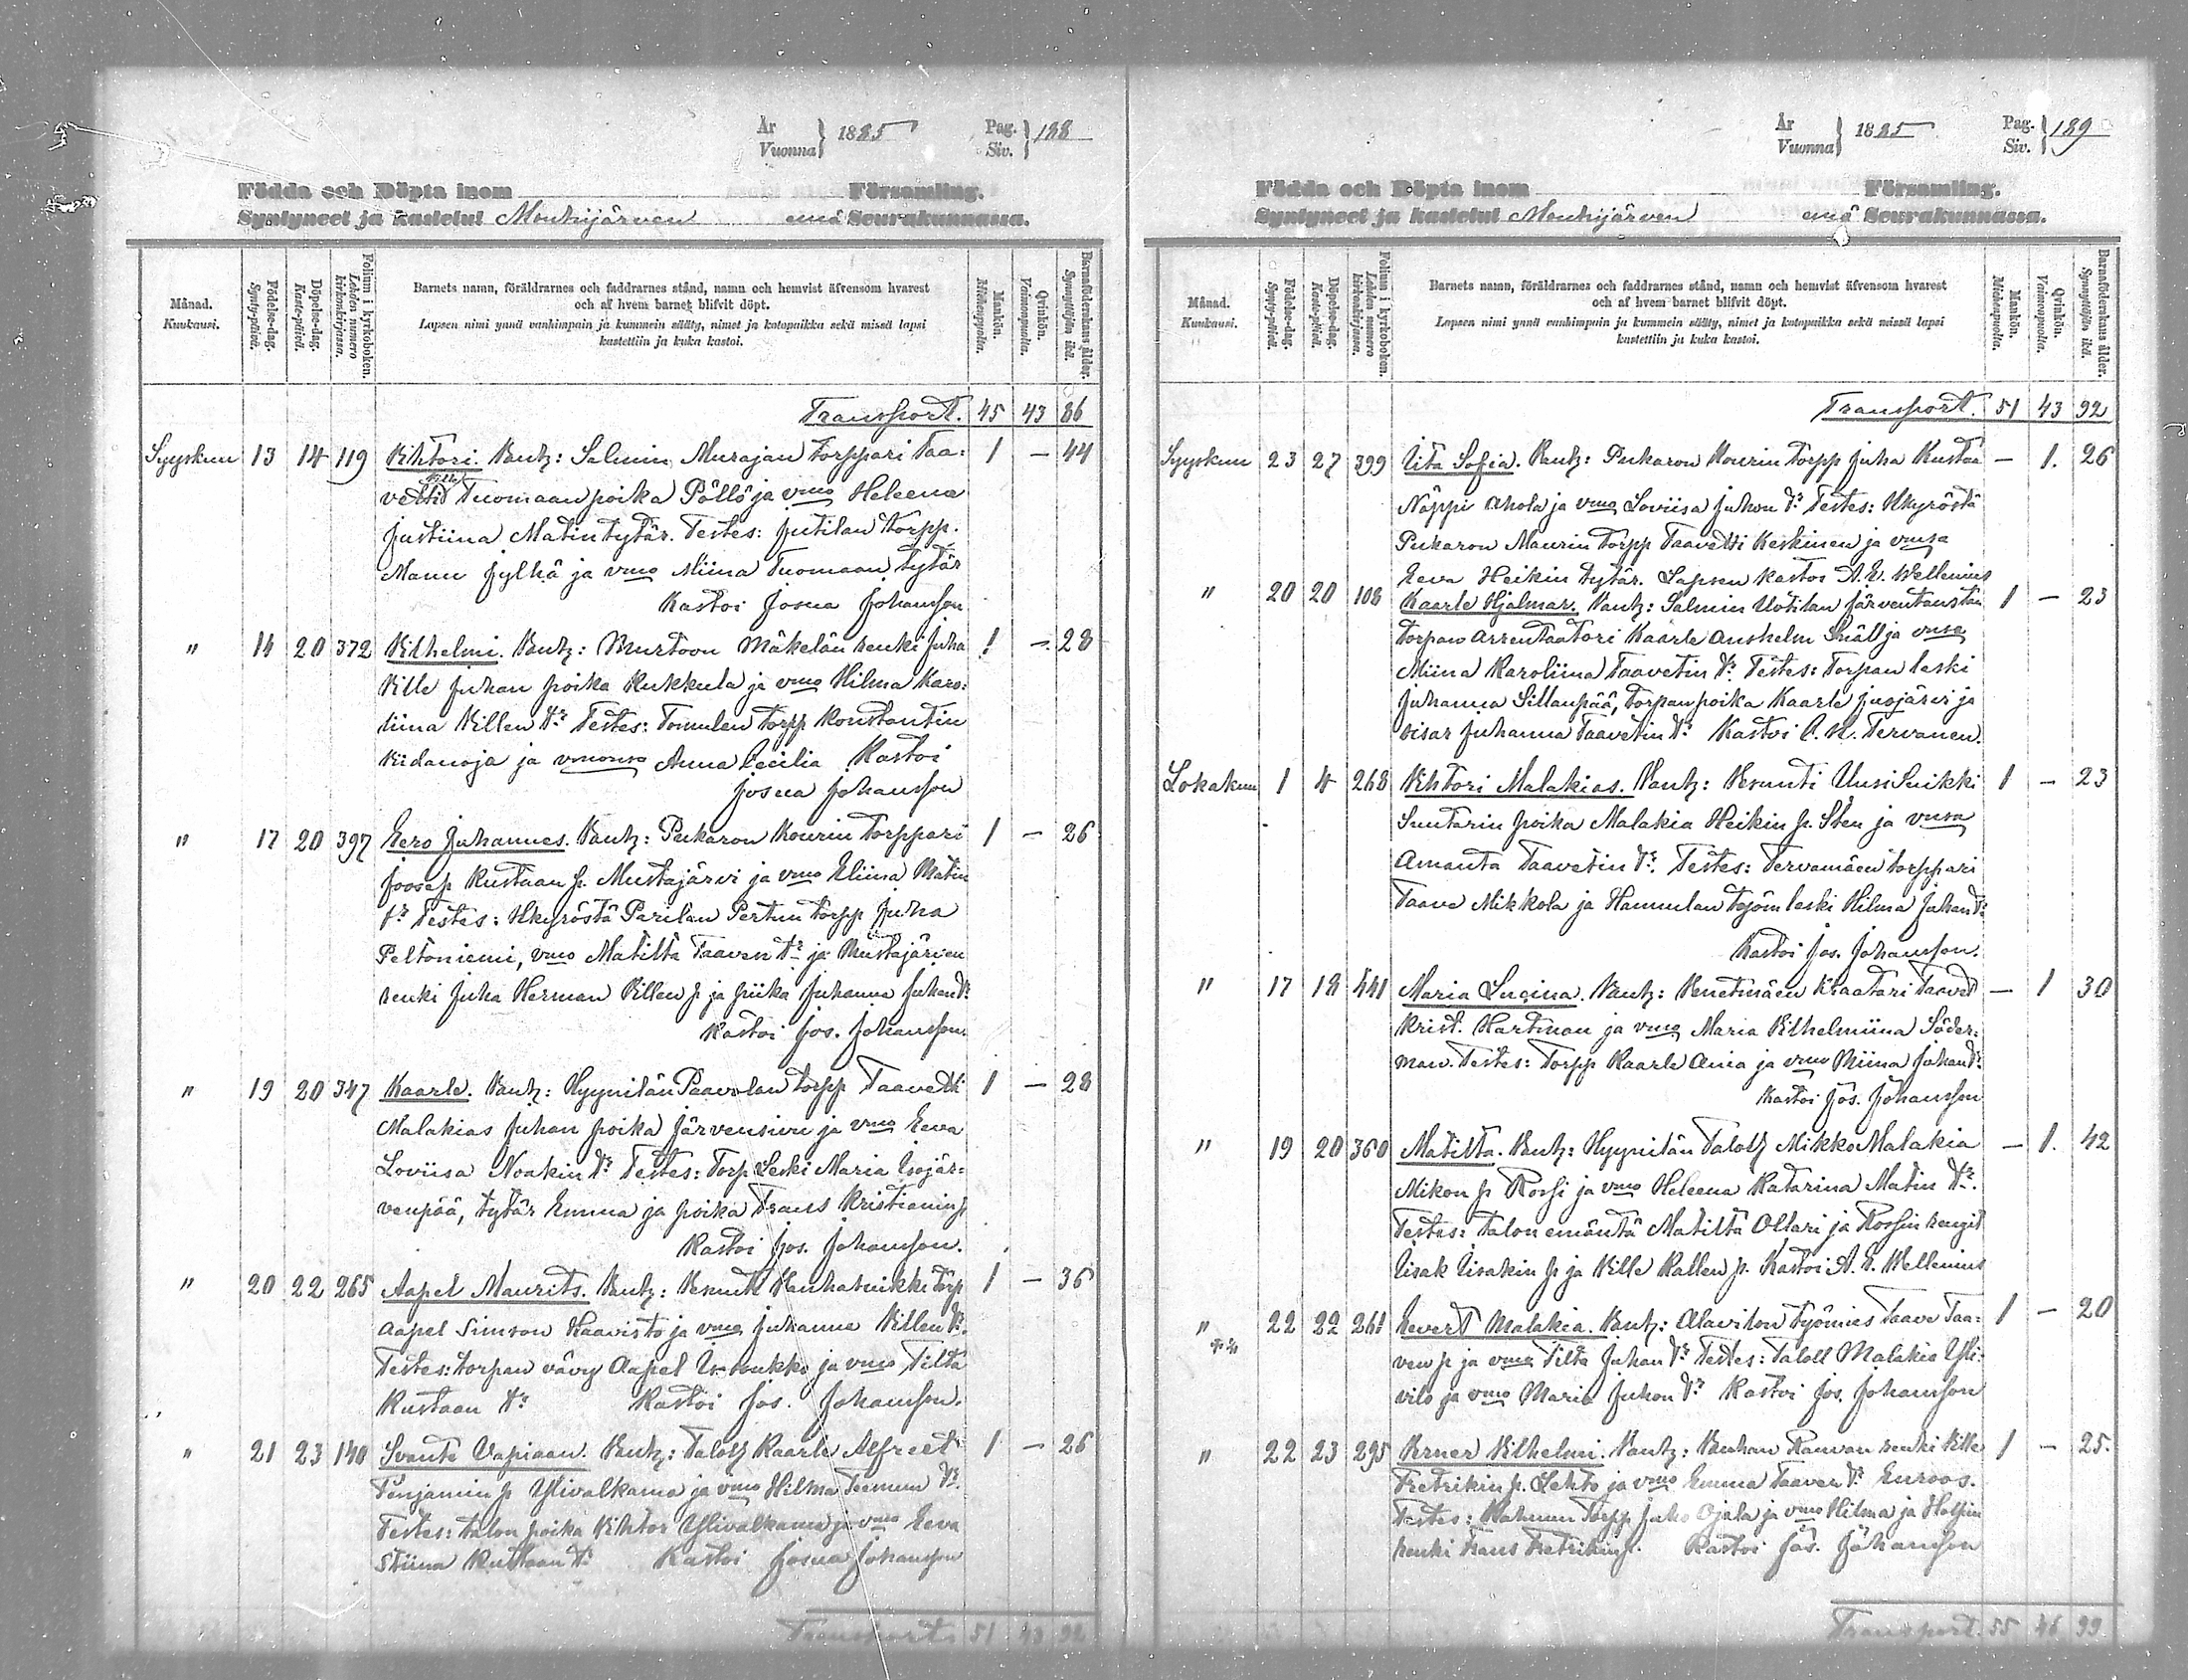 År
Vuonna } 1885
Pag.
Siv. } 188
Födda och Döpta inom Församling.
Syntyneet ja kastetut Mouhijärven ennä Seurakunnassa.
Månad.
Kuukausi.
Födelse-dag.
Synty-päivä.
Döpelse-dag.
Kaste-päivä.
Folium i kyrkoboken.
Lehden numero kirkonkirjassa.
Barnets namn, föräldrarnes och faddrarnes stånd, namn och hemvist äfvensom hvarest
och af hvem barnet blifvit döpt.
Lapsen nimi ynnä vanhimpain ja kummein sääty, nimet ja kotopaikka sekä missä lapsi
kastettiin ja kuka kastoi.
Mankön.
Miehenpuolta.
Qvinkön.
Vaimonpuolta.
Barnaföderskans ålder.
Synnyttäjän ikä.
Transport. 45 43 86
Syyskuu 13 14 119 Vihtori. Vantz: Salmin Murajan torppari Taa: 1 — 44
vetti Tuomaanpoika Pöllö ja vmo Heleena
Justiina Matintytär. Testes: Jutilan torpp.
Manu Jylhä ja vmo Miina Tuomaan tytär
Kastoi Josua Johansson
" 14 20 372 Vilhelmi. Vantz: Murtoon Mäkelän renki Juha 1 — 28
Ville Juhan poika Kukkula ja vmo Hilma Karo:
liina Villen tr Testes: Tomulen torpp Konstantin
Viidanoja ja vmonsa Anna Cecilia Kastoi
Josua Johansson
" 17 20 397 Eero Juhannes. Vantz: Pukaron Kourin torppari 1 — 26
Joosep Kustaan p. Mustajärvi ja vmo Eliina Matin
tr Testes: Hkyröstä Parilan Perttun torpp Juha
Peltoniemi, vmo Matilta Taaven tr ja Mustajärven
renki Juha Herman Villen p ja piika Juhanna Juhan tr
Kastoi Jos. Johansson.
" 19 20 347 Kaarle. Vantz: Hyynilän Paavolan torpp Taavetti 1 — 28
Malakias Juhan poika Järvensivu ja vmo Eeva
Loviisa Noakin tr Testes: Torp Leski Maria Isojär=
venpää, tytär Emma ja poika Frans Kristianin p
Kastoi Jos. Johansson.
" 20 22 265 Aapel Maurits. Vantz: Vesunti Vanhasuikki torp 1 — 36
Aapel Simson Haavisto ja vmo Juhanna Villen tr.
Testes: torpan vävy Aapel ja vmo Tilta
Kustaan tr Kastoi Jos. Johansson.
" 21 23 140 Svante Vapiaan. Vantz: Talolz Kaarle Alfreet 1 — 26
Penjamin p Ylivalkama ja vmo Hilma Teemun tr.
Testes: talon poika Vihtor Ylivalkama ja vmo Eeva
Stiina Kustaan tr Kastoi Josua Johansson
Transport 51 43 92
År
Vuonna } 1885
Pag.
Siv. } 189
Födda och Döpta inom Församling.
Syntyneet ja kastetut Mouhijärven ennä Seurakunnassa.
Månad.
Kuukausi.
Födelse-dag.
Synty-päivä.
Döpelse-dag.
Kaste-päivä.
Folium i kyrkoboken.
Lehden numero kirkonkirjassa.
Barnets namn, föräldrarnes och faddrarnes stånd, namn och hemvist äfvensom hvarest
och af hvem barnet blifvit döpt.
Lapsen nimi ynnä vanhimpain ja kummein sääty, nimet ja kotopaikka sekä missä lapsi
kastettiin ja kuka kastoi.
Mankön.
Miehenpuolta.
Qvinkön.
Vaimonpuolta.
Barnaföderskans ålder.
Synnyttäjän ikä.
Transport. 51 43 92
Syyskuu 23 27 399 Iita Sofia. Vantz: Pukaron Kourin torpp Juha Kustaa — 1. 26
Näppi Ahola ja vmo Loviisa Juhon tr Testes: Hkyröstä
Pukaron Maurin torpp Taavetti Keskinen ja vmsa
Eeva Heikin tytär. Lapsen kastoi A. E. Wellenius
" 20 20 108 Kaarle Hjalmar. Vantz: Salmin Uotilan Järventaustan 1 — 23
torpan arrentaatori Kaarle Anshelm Snäll ja vmsa
Miina Karoliina Taavetin tr Testes: Torpan leski
Juhanna Sillanpää, torpanpoika Kaarle Jusjärvi ja
sisar Juhanna Taavetin tr Kastoi C. K. Tervanen.
Lokakuu 1 4 268 Vihtori Malakias. Vantz: Vesunti UusiSuikki 1 — 23
Suutarin poika Malakia Heikin p. Sten ja vmsa
Amanta Taavetin tr. Testes: Tervamäen torppari
Taave Mikkola ja Hannulan työm leski Hilma Juhan tr
Kastoi Jos. Johansson.
" 17 18 441 Maria Lucina. Vantz: Venetmäen Kraatari Taavet — 1 30
Krist. Hartman ja vmo Maria Vilhelmiina Söder:
man. Testes: Torpp Kaarle Ania ja vmo Miina Johan tr.
Kastoi Jos. Johansson
" 19 20 360 Matilta. Vantz: Hyynilän Talolz Mikko Malakia — 1. 42
Mikon p Rossi ja vmo Heleena Katarina Matin tr.
Testes: talon emäntä Matilta Ollari ja Rossin rengit
Iisak Iisakin p ja Ville Kallen p. Kastoi A. E. Wellenius
" 22 22 261 Eevert Malakia. Vantz: Alavilon työmies Taave Taa= 1 — 20
ven p ja vmo Tilta Juhan tr Testes: Taloll Malakia Yli:
vilo ja vmo Maria Juhon tr Kastoi Jos. Johansson
" 22 23 295 Verner Vilhelmi. Vantz: Vanhan Rauvan renki Ville 1 — 25.
Fretrikin p. Lehto ja vmo Emma Taavet tr Enroos.
Testes: Hahmun torpp Juho Ojala ja vmo Hilma ja Holpin
renki Frans Fretrikin p. Kastoi Jos. Johansson
Transport. 55 46 99